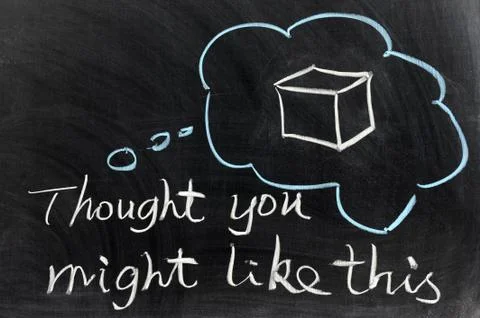 Thought you
might like this